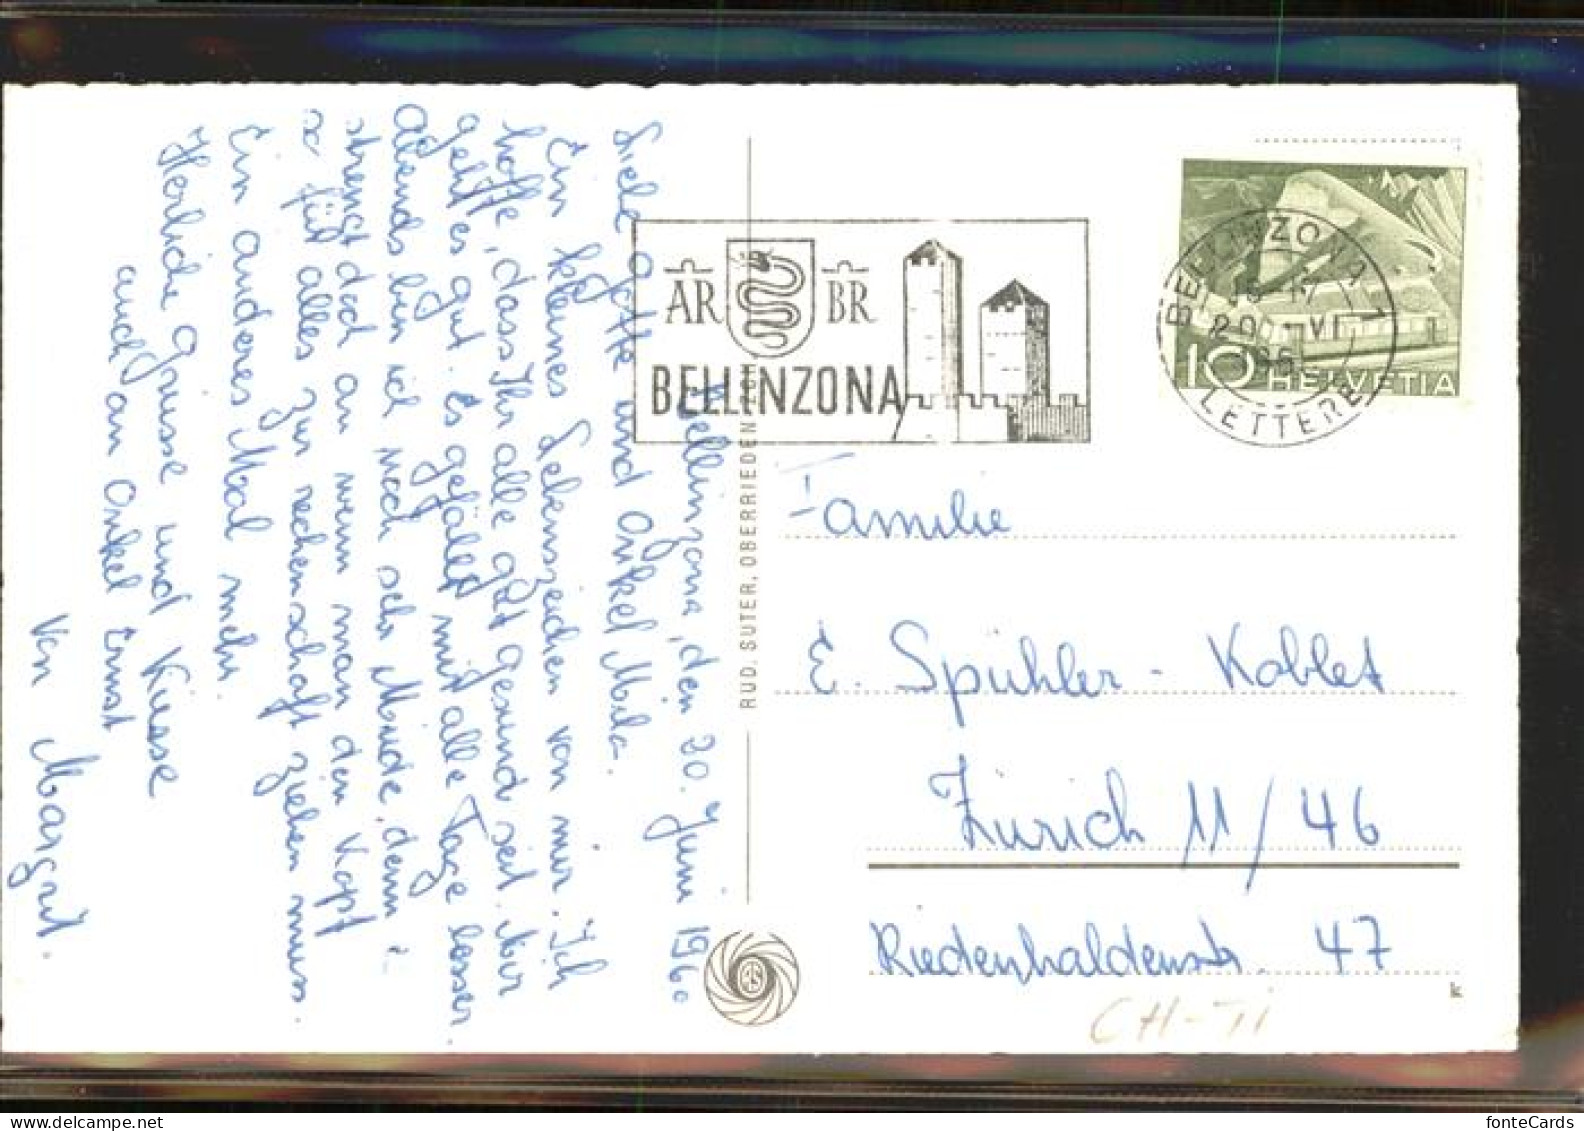 Bellinzona, den 20. Juni 1960
Liebe Gotte und Onkel Milo.
Ein kleines Lebenszeichen von mir. Ich
hoffe, dass Ihr alle gut gesund seit. Mir
geht es gut. Es gefällt mit alle Tage besser
Abends bin ich noch sehr Müde, denn e-
strengt doch an wenn man den Kopf
so für alles zur rechenschaft ziehen muss.
Ein anderes Mal mehr.
Herliche Grüsse und Küsse
auch an Onkel Ernst
Von Margrit.
AR BR
BELLINZONA
BELLINZONA 1
20. VI
LETTERE
10 HELVETIA
RUD. SUTER, OBERRIEDEN-ZCH
Familie
E. Spühler - Koblet
Zürich 11/46
Riedenhaldenstr. 47
K
CH-TI
fonteCards